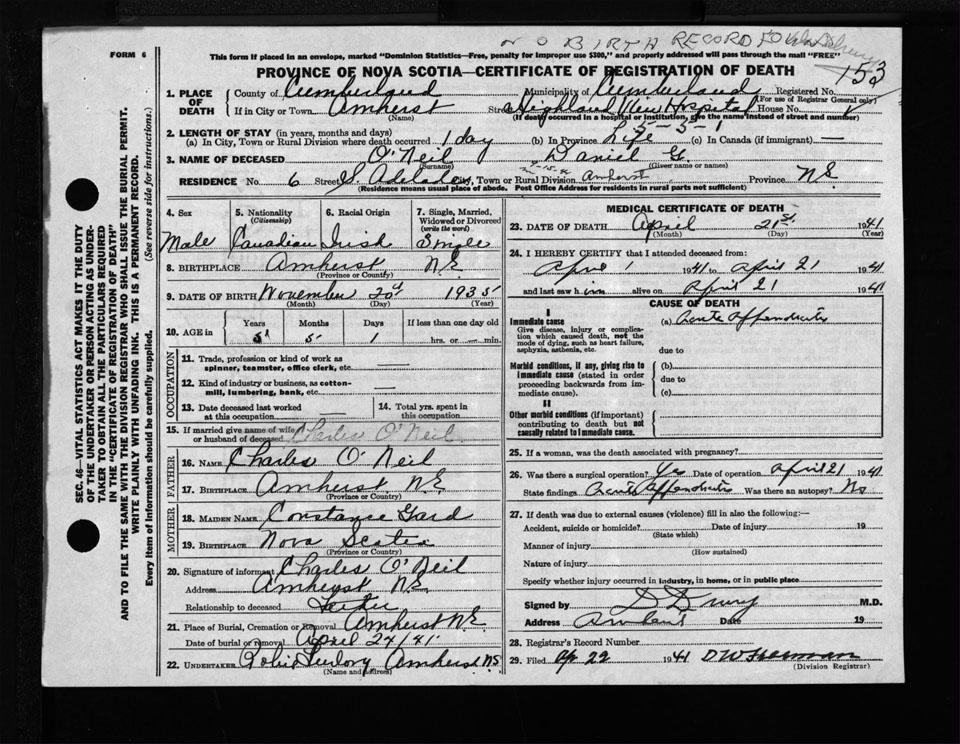 NO BIRTH RECORD FO
FORM 6
This form if placed in an envelope, marked "Dominion Statistics—Free, penalty for improper use $300," and properly addressed will pass through the mail "FREE"
153
PROVINCE OF NOVA SCOTIA—CERTIFICATE OF REGISTRATION OF DEATH
1. PLACE OF DEATH
County of Cumberland Municipality of Cumberland Registered No.
(For use of Registrar General only)
If in City or Town Amherst Street Highland View Hospital House No.
(Name) (If death occurred in a hospital or institution, give the name instead of street and number)
5-5-1
2. LENGTH OF STAY (in years, months and days)
(a) In City, Town or Rural Division where death occurred 1 day (b) In Province Life (c) In Canada (if immigrant) —
3. NAME OF DECEASED O'Neil Daniel G.
(Surname) (Given name or names)
RESIDENCE No. 6 Street S. Adelaide City, Town or Rural Division Amherst Province N.S.
(Residence means usual place of abode. Post Office Address for residents in rural parts not sufficient)
SEC. 46—VITAL STATISTICS ACT MAKES IT THE DUTY
OF THE UNDERTAKER OR PERSON ACTING AS UNDER-
TAKER TO OBTAIN ALL THE PARTICULARS REQUIRED
IN THE "CERTIFICATE OF REGISTRATION OF DEATH"
AND TO FILE THE SAME WITH THE DIVISION REGISTRAR WHO SHALL ISSUE THE BURIAL PERMIT.
WRITE PLAINLY WITH UNFADING INK. THIS IS A PERMANENT RECORD.
Every item of information should be carefully supplied. (See reverse side for instructions.)
4. Sex
Male
5. Nationality
(Citizenship)
Canadian
6. Racial Origin
Irish
7. Single, Married,
Widowed or Divorced
(write the word)
Single
8. BIRTHPLACE Amherst N.S.
(Province or Country)
9. DATE OF BIRTH November 20th 1935
(Month) (Day) (Year)
10. AGE in
Years Months Days If less than one day old
5 5 1 hrs. or min.
OCCUPATION
11. Trade, profession or kind of work as
spinner, teamster, office clerk, etc. —
12. Kind of industry or business, as cotton-
mill, lumbering, bank, etc. —
13. Date deceased last worked
at this occupation —
14. Total yrs. spent in
this occupation
15. If married give name of wife
or husband of deceased Charles O'Neil
FATHER
16. NAME Charles O'Neil
17. BIRTHPLACE Amherst N.S.
(Province or Country)
MOTHER
18. MAIDEN NAME Constance Gard
19. BIRTHPLACE Nova Scotia
(Province or Country)
20. Signature of informant Charles O'Neil
Address Amherst N.S.
Relationship to deceased Father
21. Place of Burial, Cremation or Removal Amherst N.S.
Date of burial or removal April 24/41
22. UNDERTAKER Amherst N.S.
(Name and address)
MEDICAL CERTIFICATE OF DEATH
23. DATE OF DEATH April 21st 1941
(Month) (Day) (Year)
24. I HEREBY CERTIFY that I attended deceased from
April 1 1941 to April 21 1941
and last saw him alive on April 21 1941
CAUSE OF DEATH
I
Immediate cause
Give disease, injury or complica-
tion which caused death, not the
mode of dying, such as heart failure,
asphyxia, asthenia, etc.
(a) Acute Appendicitis
due to
Morbid conditions, if any, giving rise to
immediate cause (stated in order
proceeding backwards from im-
mediate cause).
(b)
due to
(c)
II
Other morbid conditions (if important)
contributing to death but not
causally related to immediate cause.
25. If a woman, was the death associated with pregnancy?
26. Was there a surgical operation? Yes Date of operation April 21 1941
State findings Acute Appendicitis Was there an autopsy? No
27. If death was due to external causes (violence) fill in also the following:—
Accident, suicide or homicide? Date of injury 19
(State which)
Manner of injury
(How sustained)
Nature of injury
Specify whether injury occurred in industry, in home, or in public place
Signed by M.D.
Address Date 19
28. Registrar's Record Number
29. Filed Ap 22 1941
(Division Registrar)